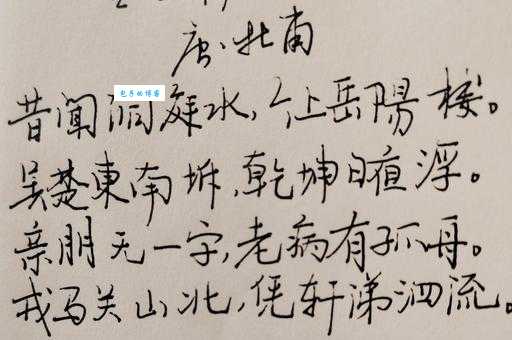 唐·杜甫
包子的博客
昔聞洞庭水,今上岳陽楼。
吴楚東南坼,乾坤日夜浮。
亲朋无一字,老病有孤舟。
戎马关山北,凭轩涕泗流。